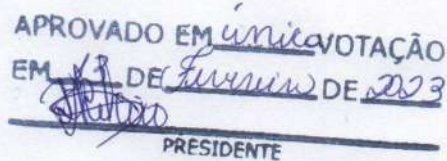 APROVADO EM única VOTAÇÃO
EM 13 DE Fevereiro DE 2023
PRESIDENTE